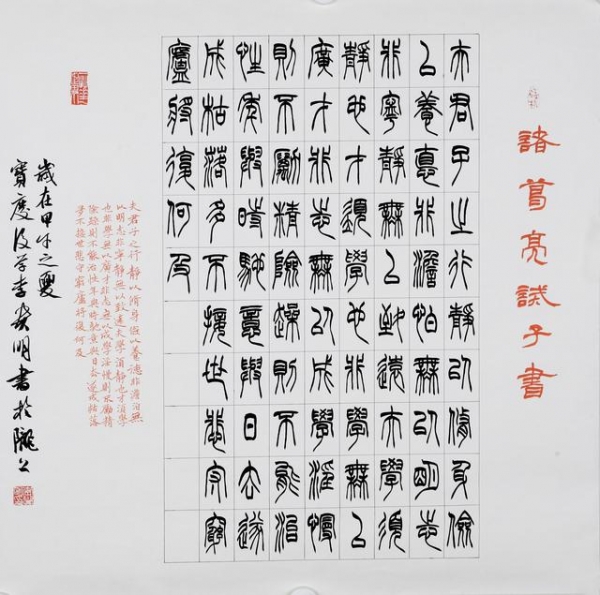 諸葛亮誡子書
夫君子之行靜以脩身儉
以養悳非澹怕無以明志
非寧靜無以致遠夫學須
靜也才須學也非學無以
廣才非志無以成學淫慢
則不勵精險躁則不能治
性年與時馳意與日去遂
成枯落多不接世悲守窮
廬將復何及
夫君子之行靜以脩身儉以養德非澹泊無
以明志非寧靜無以致遠夫學須靜也才須學
也非學無以廣才非志無以成學淫慢則不勵精
險躁則不能治性年與時馳意與日去遂成枯落
多不接世悲守窮廬將復何及
歲在甲午之夏
寶慶後學李貴明書於隴上